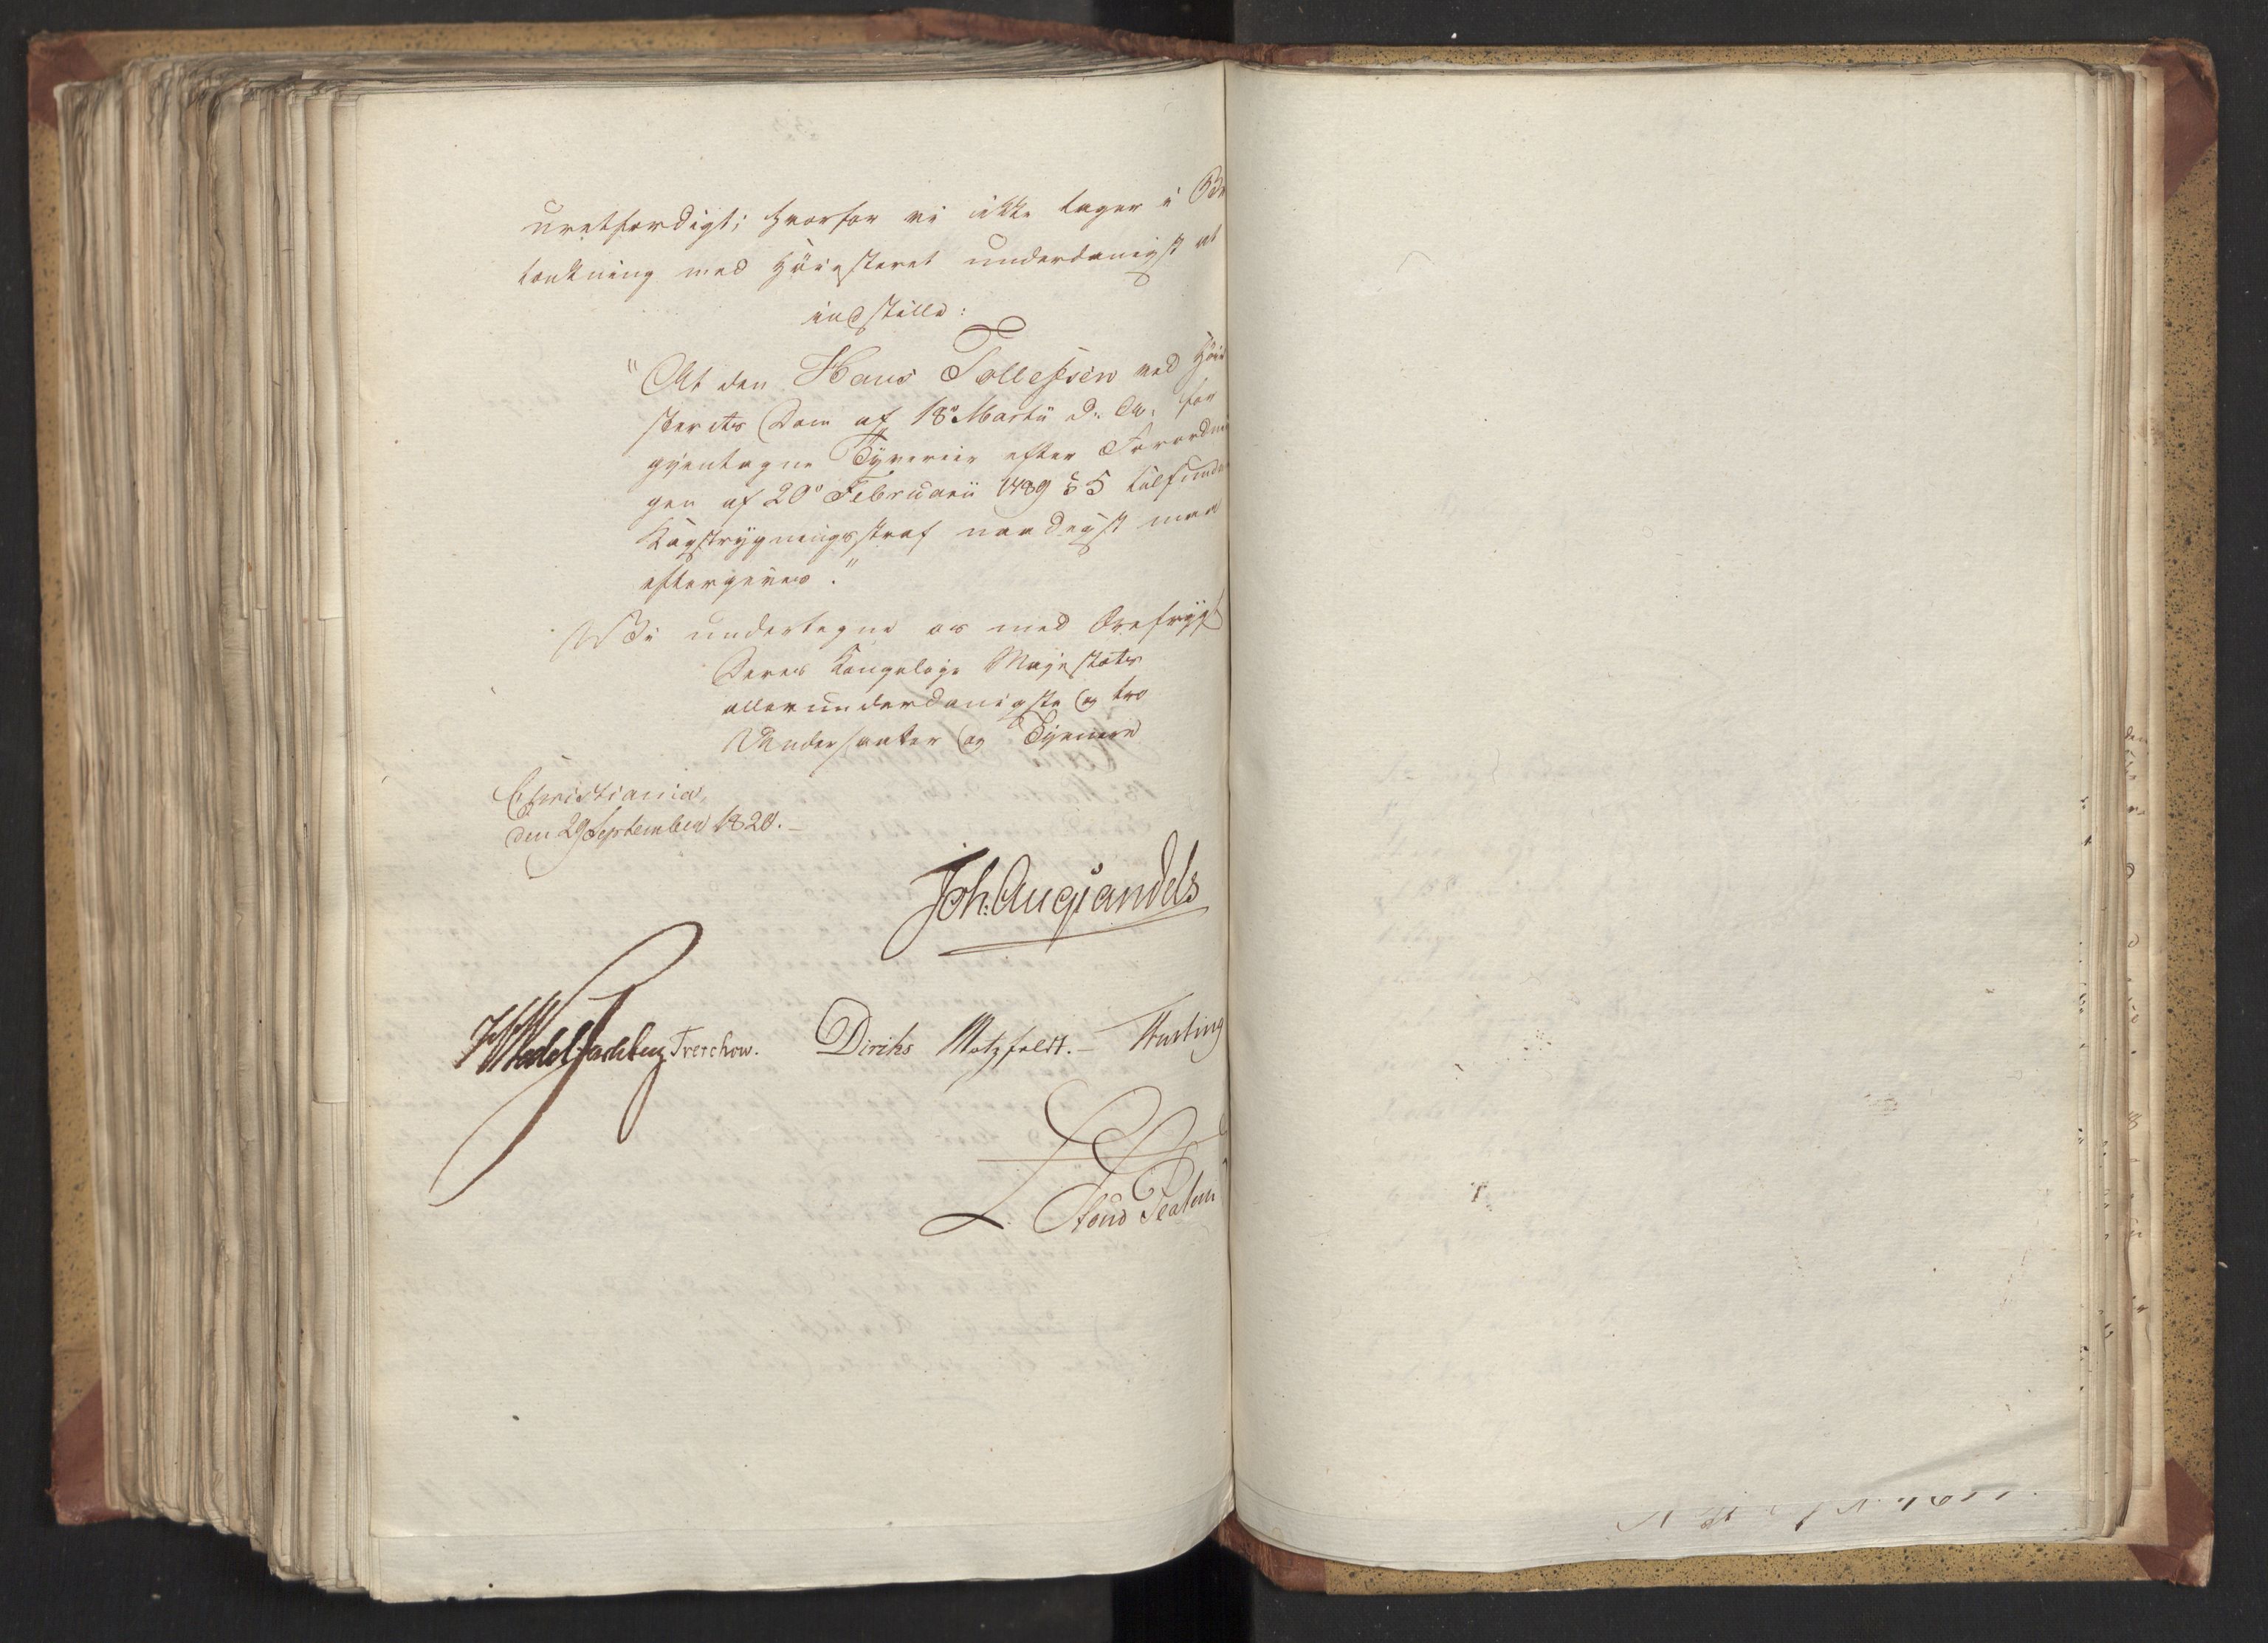 uretfærdigt; hvorfor vi ikke tager i Be
tænkning med Høiesteret underdanigst at
indstille:
"At den Hans Tollefsen ved Høie
sterets Dom af 18de Martii d. A. for
gjentagne Tyverier efter Forordnin
gen af 20de Februarii 1789 § 5 tilfundne
Kagstrygningsstraf naadigst maa
eftergives."
Vi undertegne os med Ærefrygt
Deres Kongelige Majestæts
allerunderdanigste og tro
Undersaatter og Tjenere
Christiania,
den 29 September 1820.
Joh. Aug Sandels
Wedel Jarlsberg Treschow. Diriks Motzfeldt.